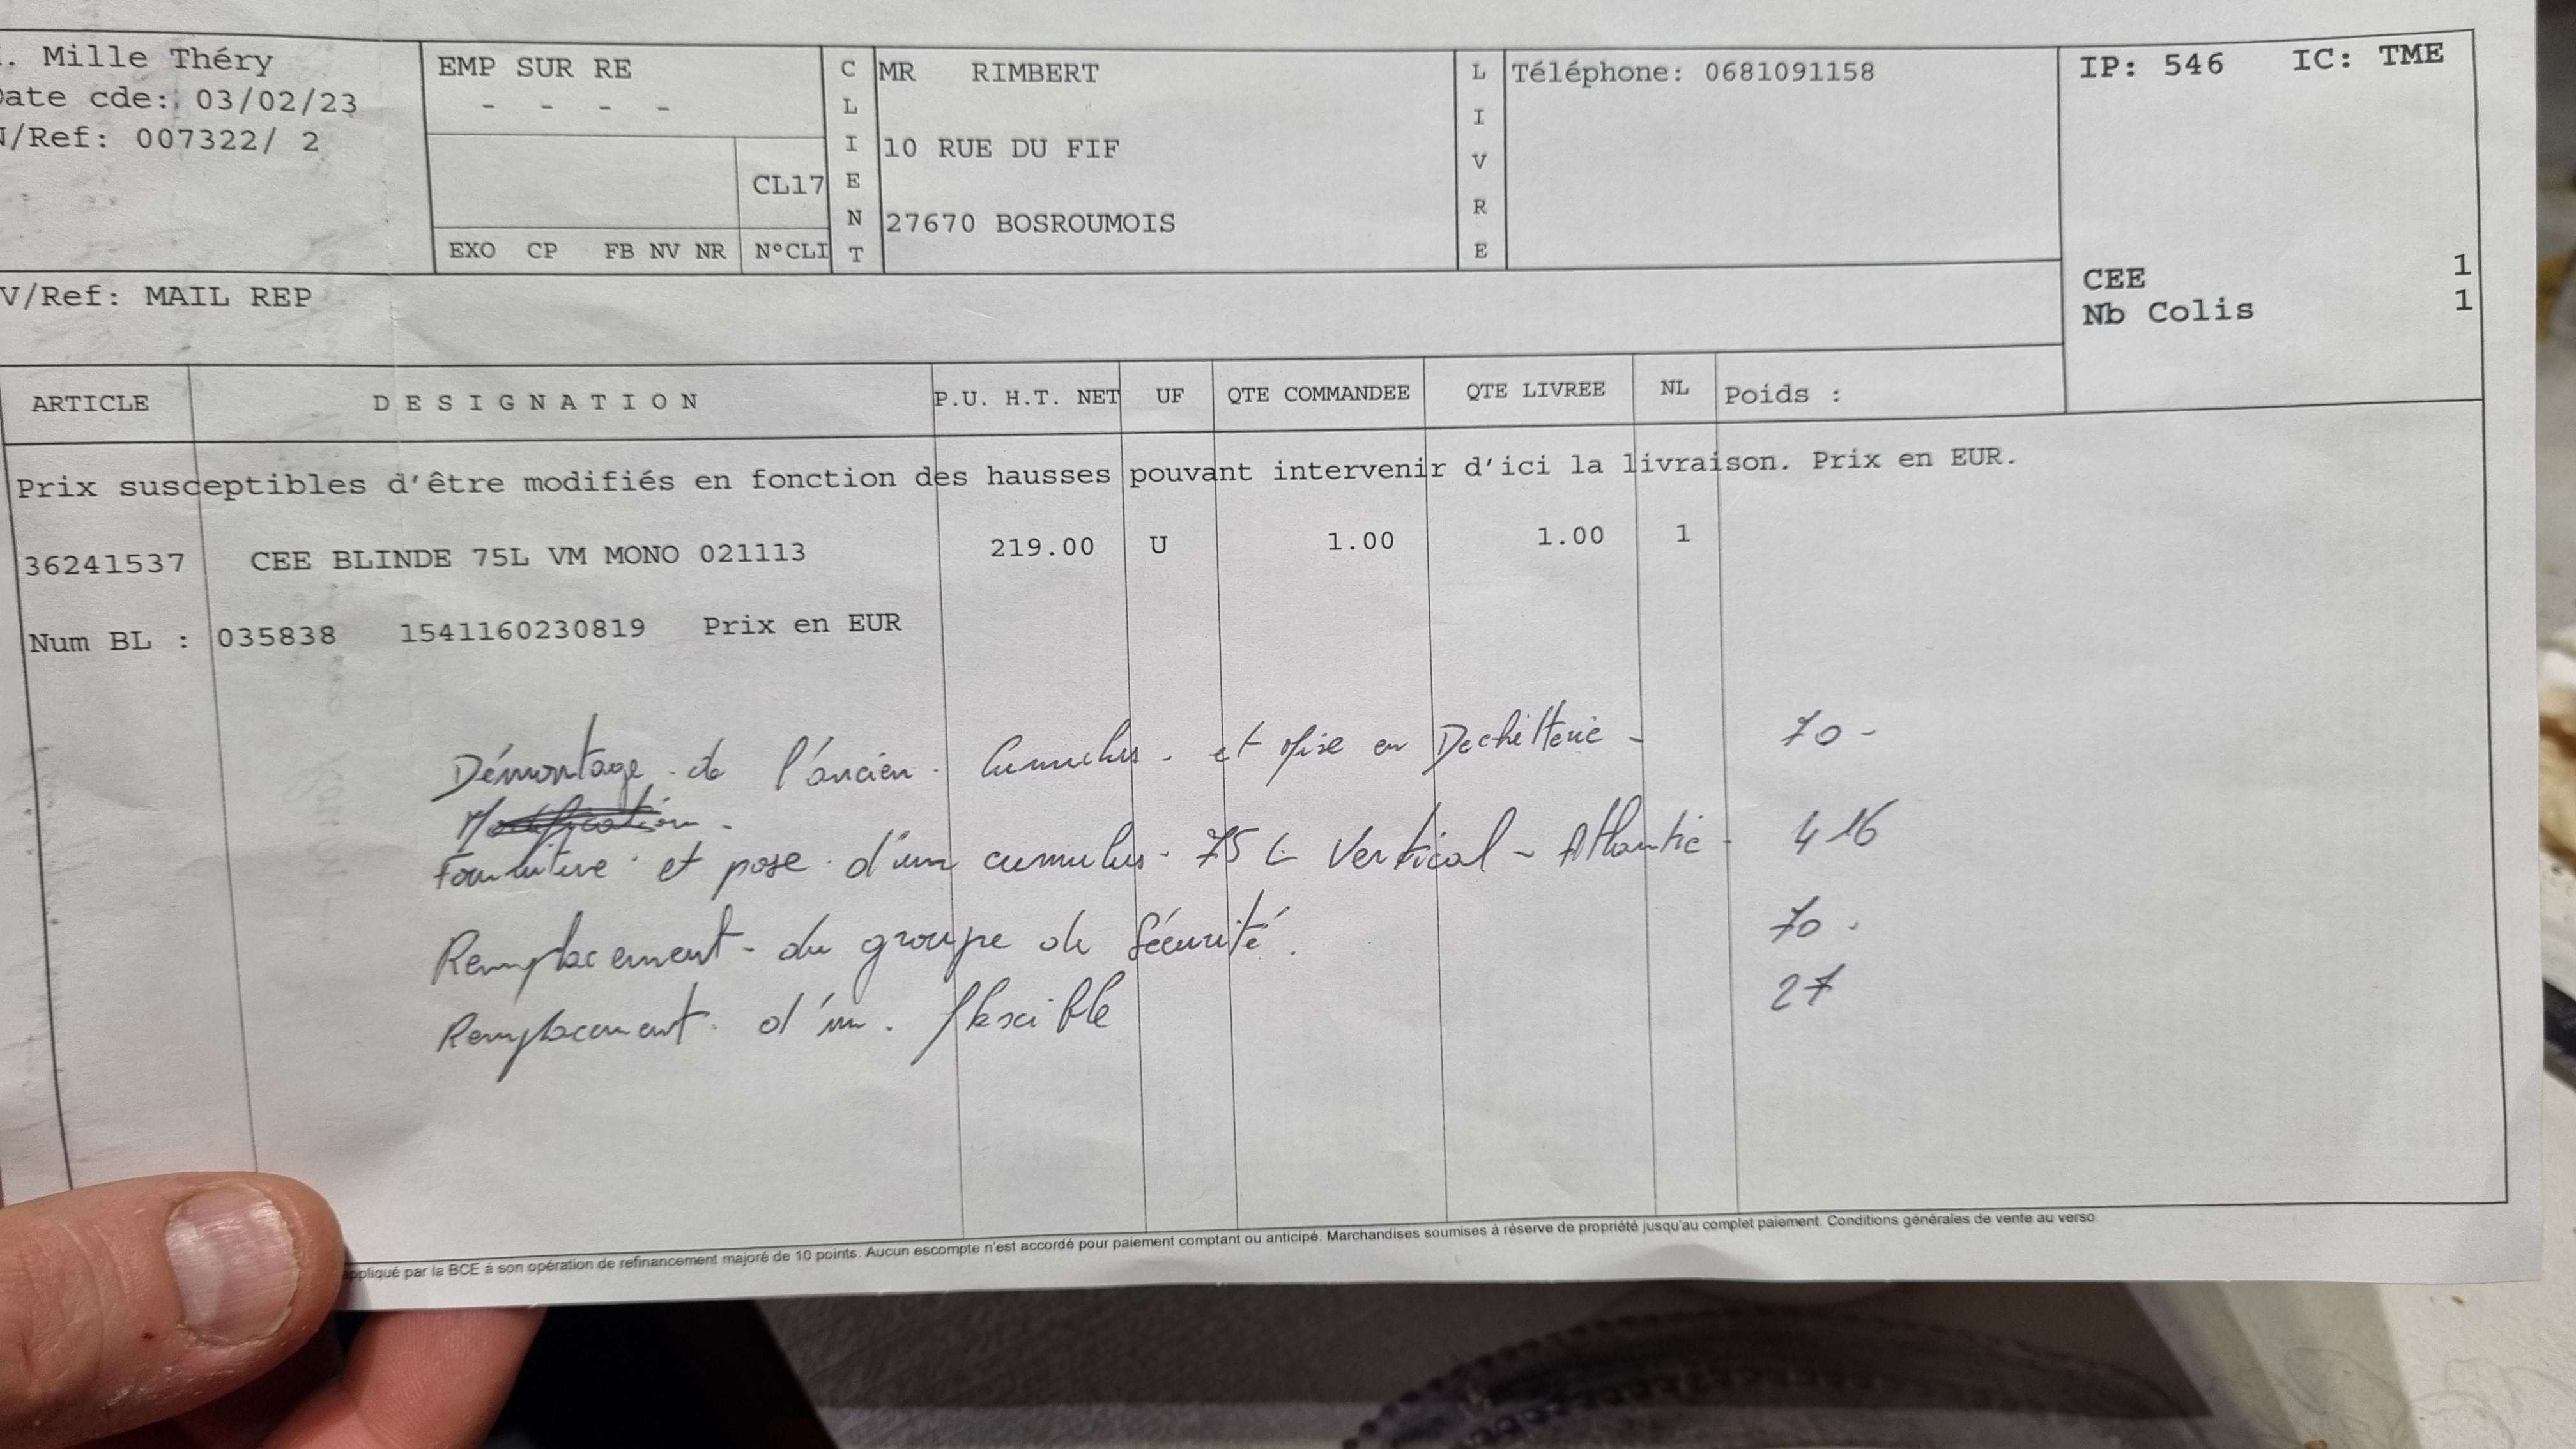 . Mille Théry
Date cde: 03/02/23
N/Ref: 007322/ 2
EMP SUR RE
- - - -
CL17
EXO CP FB NV NR N°CLI
CLIENT
MR RIMBERT
10 RUE DU FIF
27670 BOSROUMOIS
LIVRE
Téléphone: 0681091158
IP: 546 IC: TME
CEE 1
Nb Colis 1
V/Ref: MAIL REP
ARTICLE DESIGNATION P.U. H.T. NET UF QTE COMMANDEE QTE LIVREE NL Poids :
Prix susceptibles d'être modifiés en fonction des hausses pouvant intervenir d'ici la livraison. Prix en EUR.
36241537 CEE BLINDE 75L VM MONO 021113 219.00 U 1.00 1.00 1
Num BL : 035838 1541160230819 Prix en EUR
Démontage de l'ancien Cumulus. et mise en Dechetterie - 70 -
Modification.
Fourniture et pose d'un cumulus 75 L Vertical - Atlantic 416
Remplacement du groupe de Sécurité. 70.
Remplacement d'un flexcible 27
appliqué par la BCE à son opération de refinancement majoré de 10 points. Aucun escompte n'est accordé pour paiement comptant ou anticipé. Marchandises soumises à réserve de propriété jusqu'au complet paiement. Conditions générales de vente au verso.